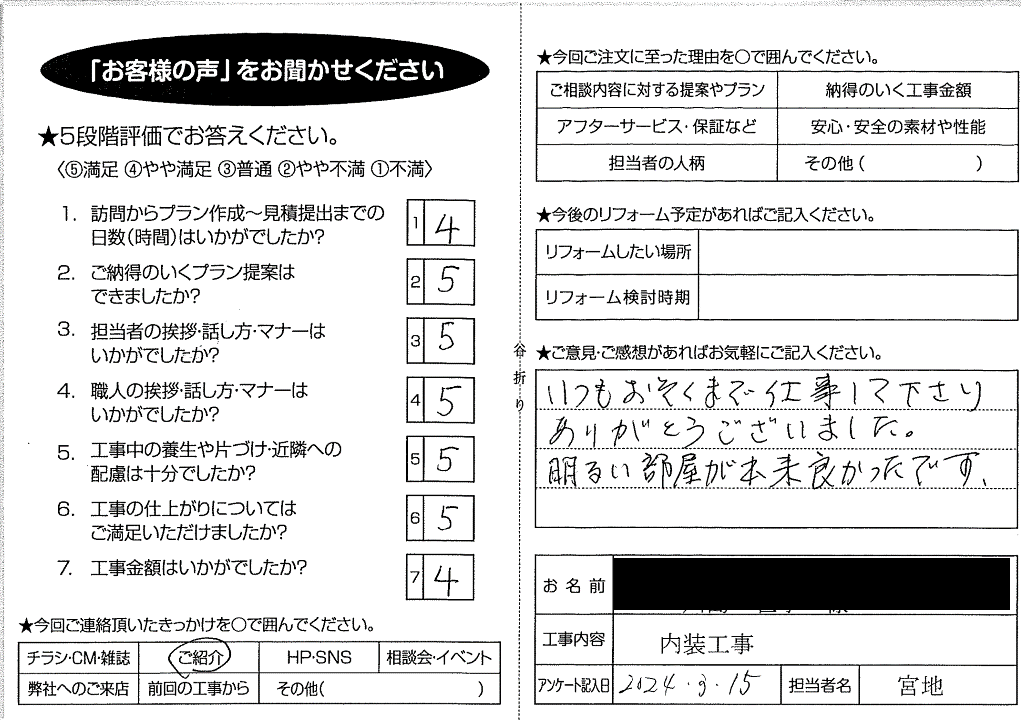 「お客様の声」をお聞かせください
★5段階評価でお答えください。
〈⑤満足 ④やや満足 ③普通 ②やや不満 ①不満〉
1. 訪問からプラン作成～見積提出までの
日数(時間)はいかがでしたか?
1 4
2. ご納得のいくプラン提案は
できましたか?
2 5
3. 担当者の挨拶・話し方・マナーは
いかがでしたか?
3 5
4. 職人の挨拶・話し方・マナーは
いかがでしたか?
4 5
5. 工事中の養生や片づけ・近隣への
配慮は十分でしたか?
5 5
6. 工事の仕上がりについては
ご満足いただけましたか?
6 5
7. 工事金額はいかがでしたか?
7 4
★今回ご連絡頂いたきっかけを○で囲んでください。
チラシ・CM・雑誌 ご紹介 HP・SNS 相談会・イベント
弊社へのご来店 前回の工事から その他( )
谷折り
★今回ご注文に至った理由を○で囲んでください。
ご相談内容に対する提案やプラン 納得のいく工事金額
アフターサービス・保証など 安心・安全の素材や性能
担当者の人柄 その他( )
★今後のリフォーム予定があればご記入ください。
リフォームしたい場所
リフォーム検討時期
★ご意見・ご感想があればお気軽にご記入ください。
いつもおそくまで仕事して下さり
ありがとうございました。
明るい部屋が出来良かったです、
お名前
工事内容 内装工事
アンケート記入日 2024.3.15 担当者名 宮地